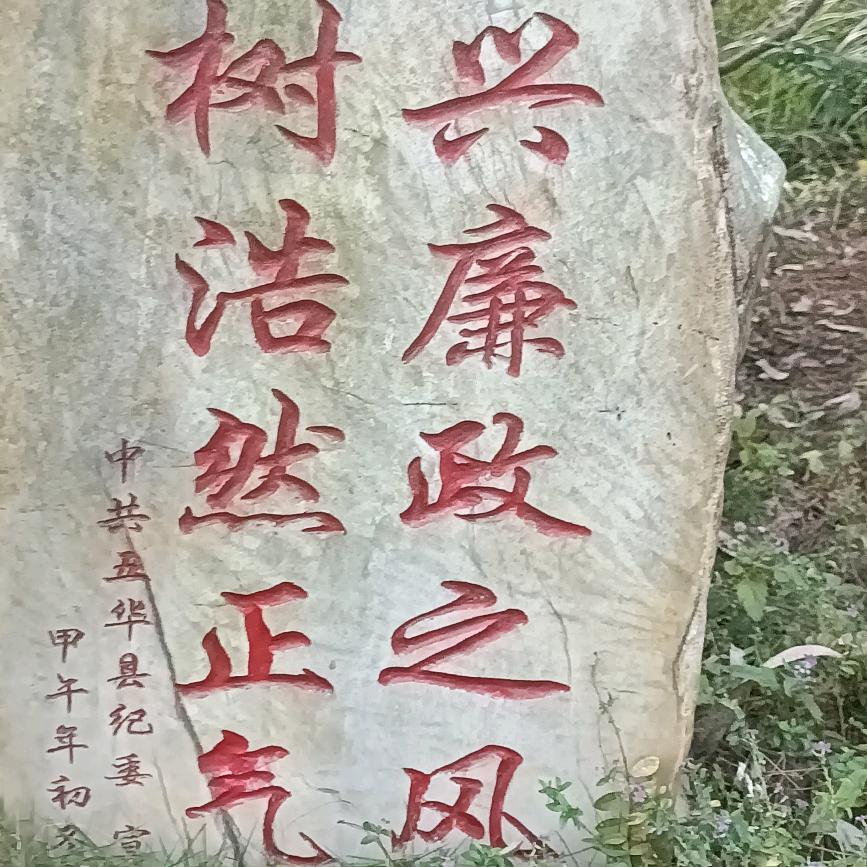 兴廉政之风
树浩然正气
中共五华县纪委 宣
甲午年初冬